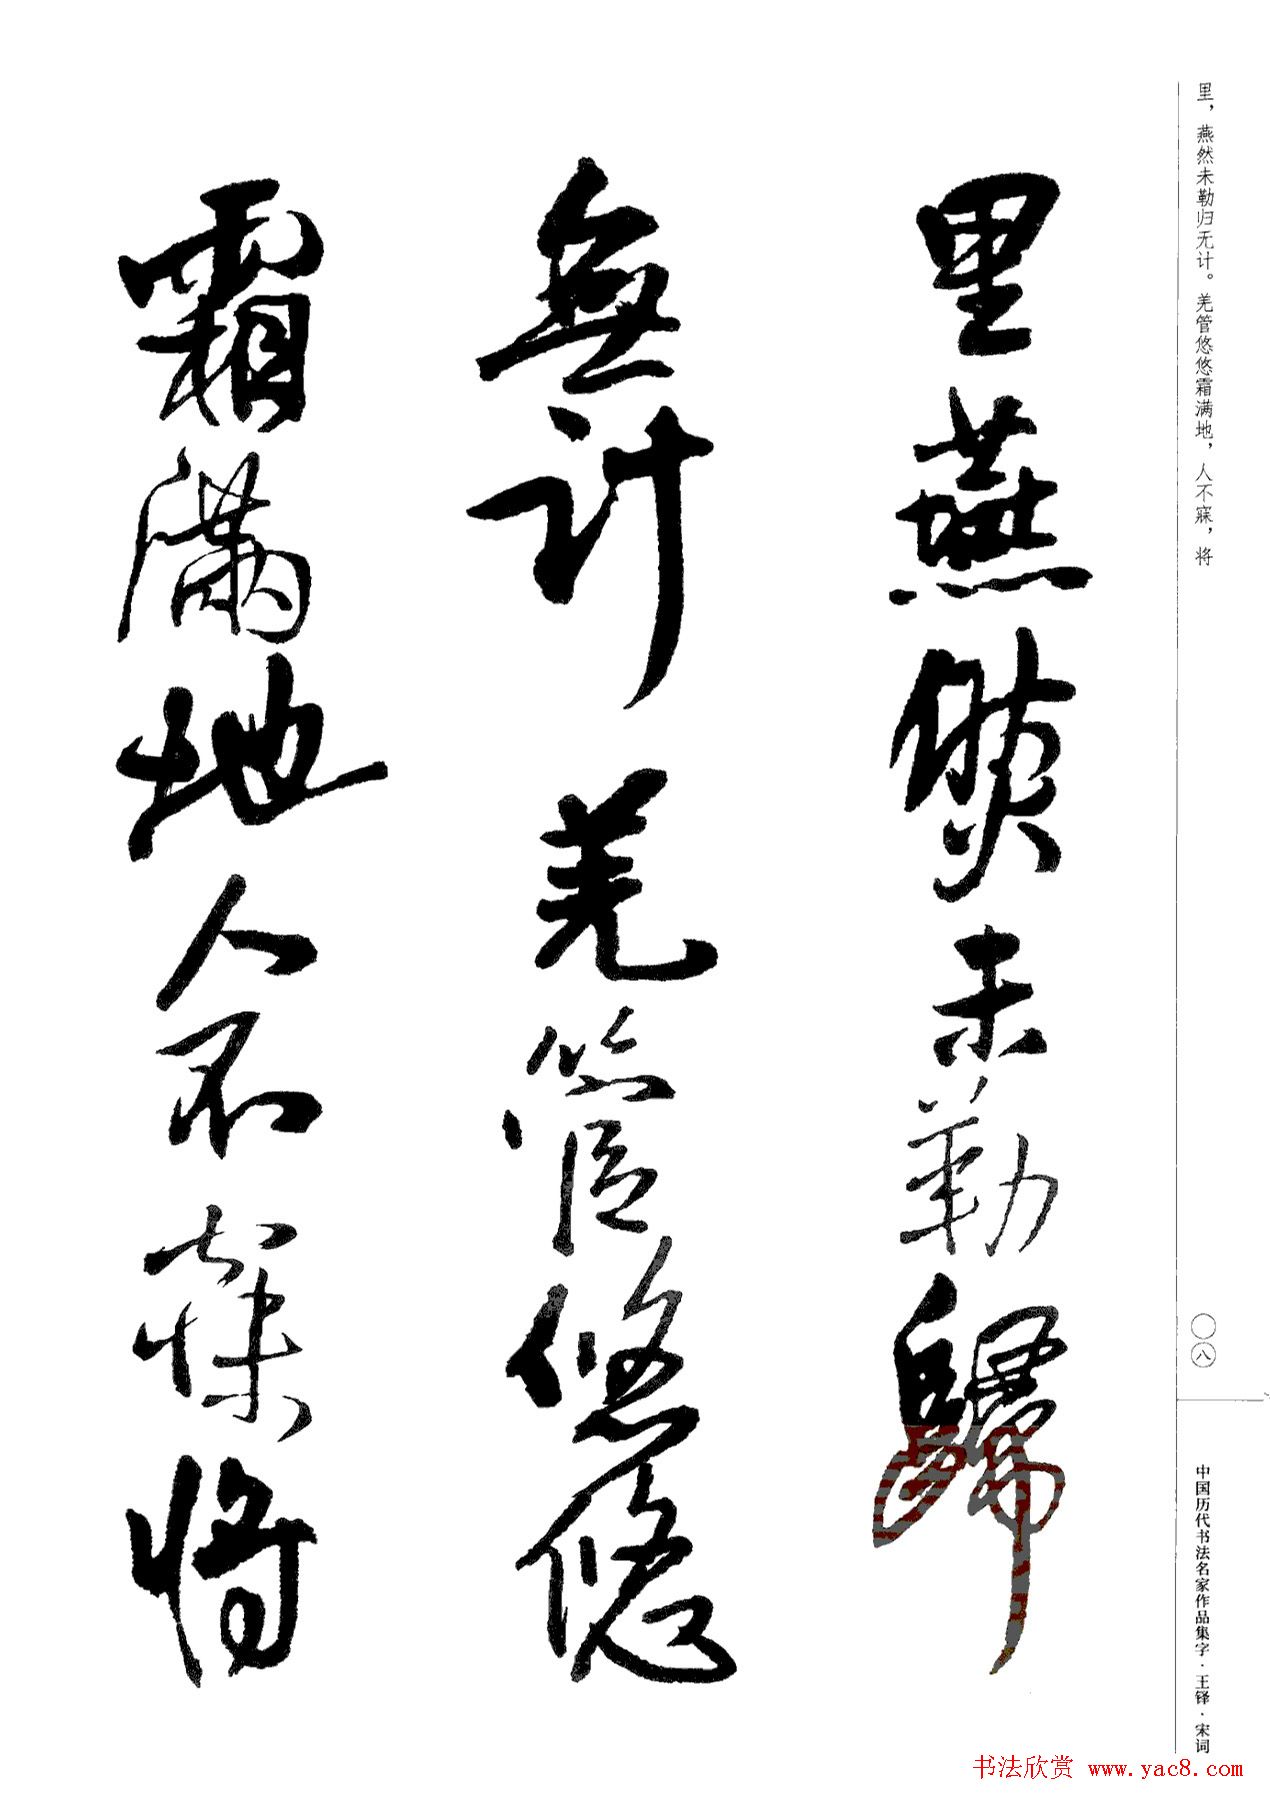 里，燕然未勒归无计。羌管悠悠霜满地，人不寐，将
里燕然未勒歸
無計羌管悠悠
霜滿地人不寐將
〇八
中国历代书法名家作品集字·王铎·宋词
书法欣赏 www.yac8.com